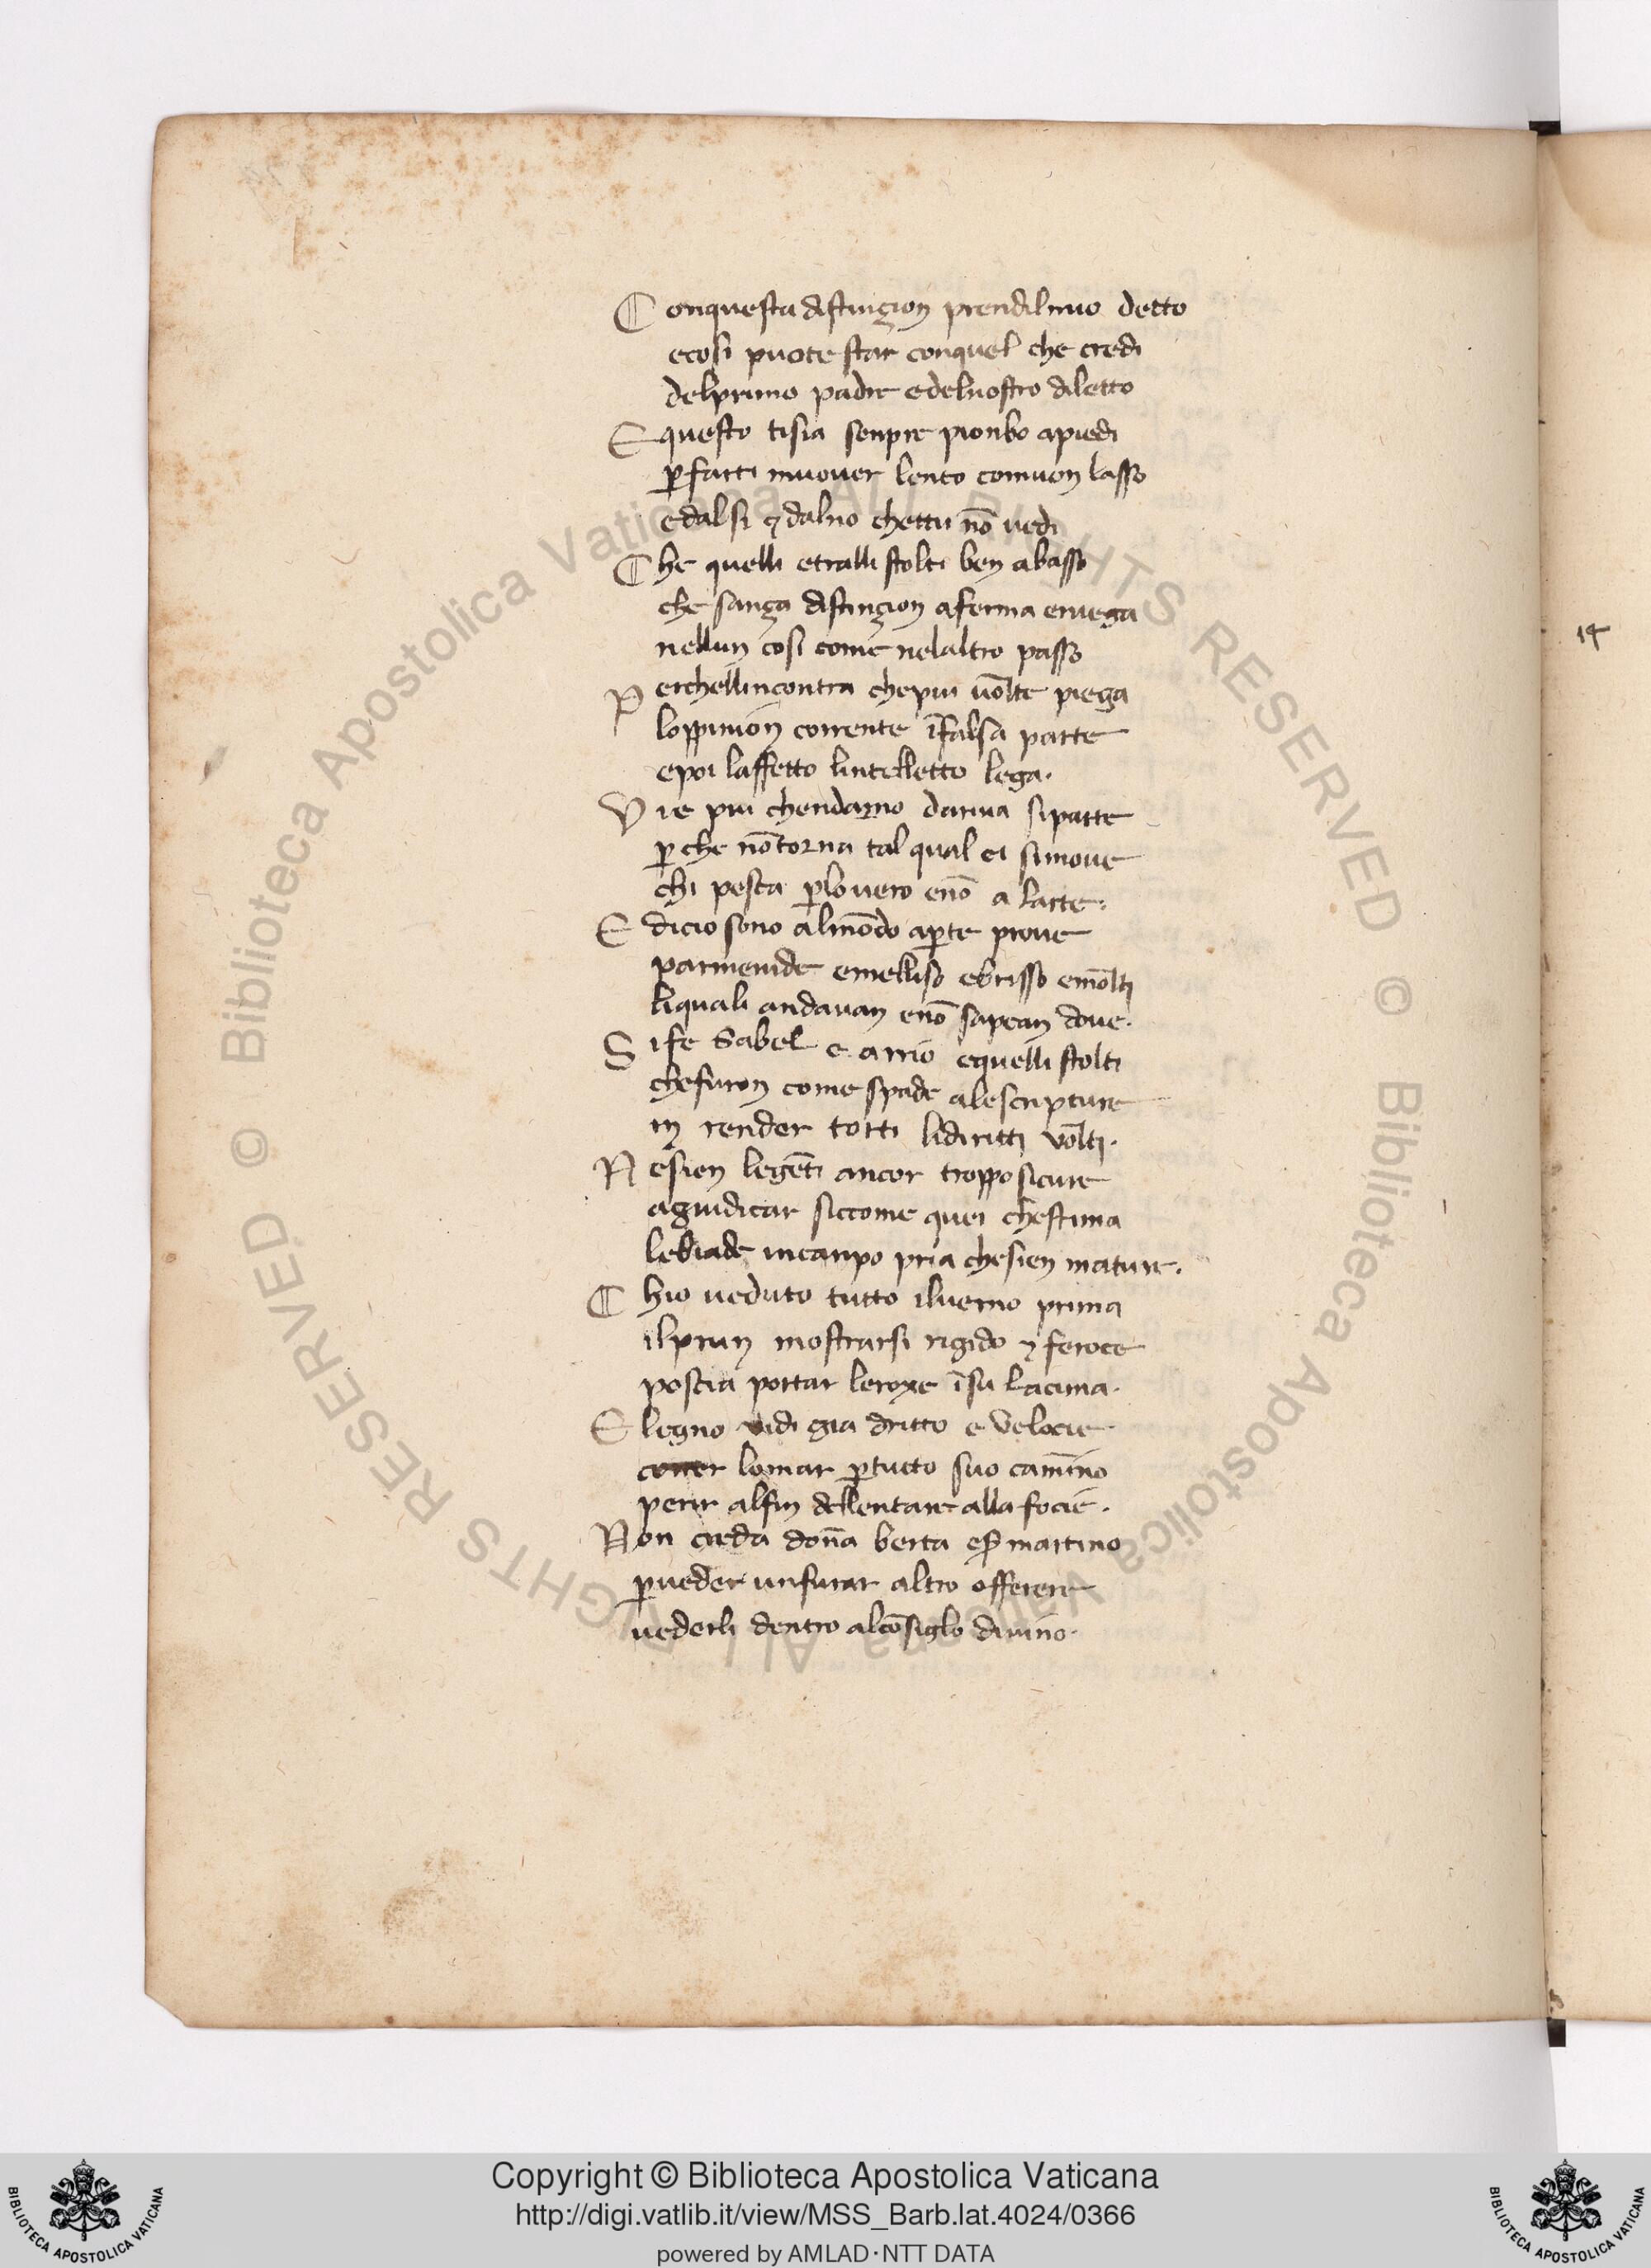 Conquesta distinçion prendilmio detto
ecosi puote star conquel che credi
delprimo padre edelnostro diletto
E questo tisia senpre pionbo apiedi
ꝑ farti muouer lento comuon lasso
edalsi ⁊ dalno chettu nō uedi
Che quelli etralli stolti ben abasso
che sança distinçion aferma eniega
nellun cosi come nelaltro passo
Perchellincontra chepiu uolte piega
loppinion corrente īfalsa parte
epoi laffetto lintelletto lega.
Vie piu chendarno dariua siparte
ꝑche nōtorna tal qual ei simoue
chi pesca ꝑlouero enō a larte.
E dicio sono almōdo aꝑte proue
parmenide emelliso ebrisso emolti
liquali andauan enō sapean doue.
Sife Sabel e arrio equelli stolti
chefuron come spade alescripture
in render torti lidiritti volti.
Nesien legēti ancor troppo sicure
agiudicar siccome quei chestima
lebiade incanpo pria chesien mature.
Chio ueduto tutto iluerno prima
ilprun mostrarsi rigido ⁊ feroce
poscia portar leroxe īsu lacima.
E legno uidi gia dritto e veloce
correr lomar ꝑtutto suo camīno
perir alfin dellentare alla focie.
Non creda dōna berta eser martino
ꝑueder unfurar altro offerere
uederli dentro alcōsiglo diuino.
14
Copyright © Biblioteca Apostolica Vaticana
http://digi.vatlib.it/view/MSS_Barb.lat.4024/0366
powered by AMLAD·NTT DATA
BIBLIOTECA APOSTOLICA VATICANA
BIBLIOTECA APOSTOLICA VATICANA
© Biblioteca Apostolica Vaticana ALL RIGHTS RESERVED
© Biblioteca Apostolica Vaticana ALL RIGHTS RESERVED